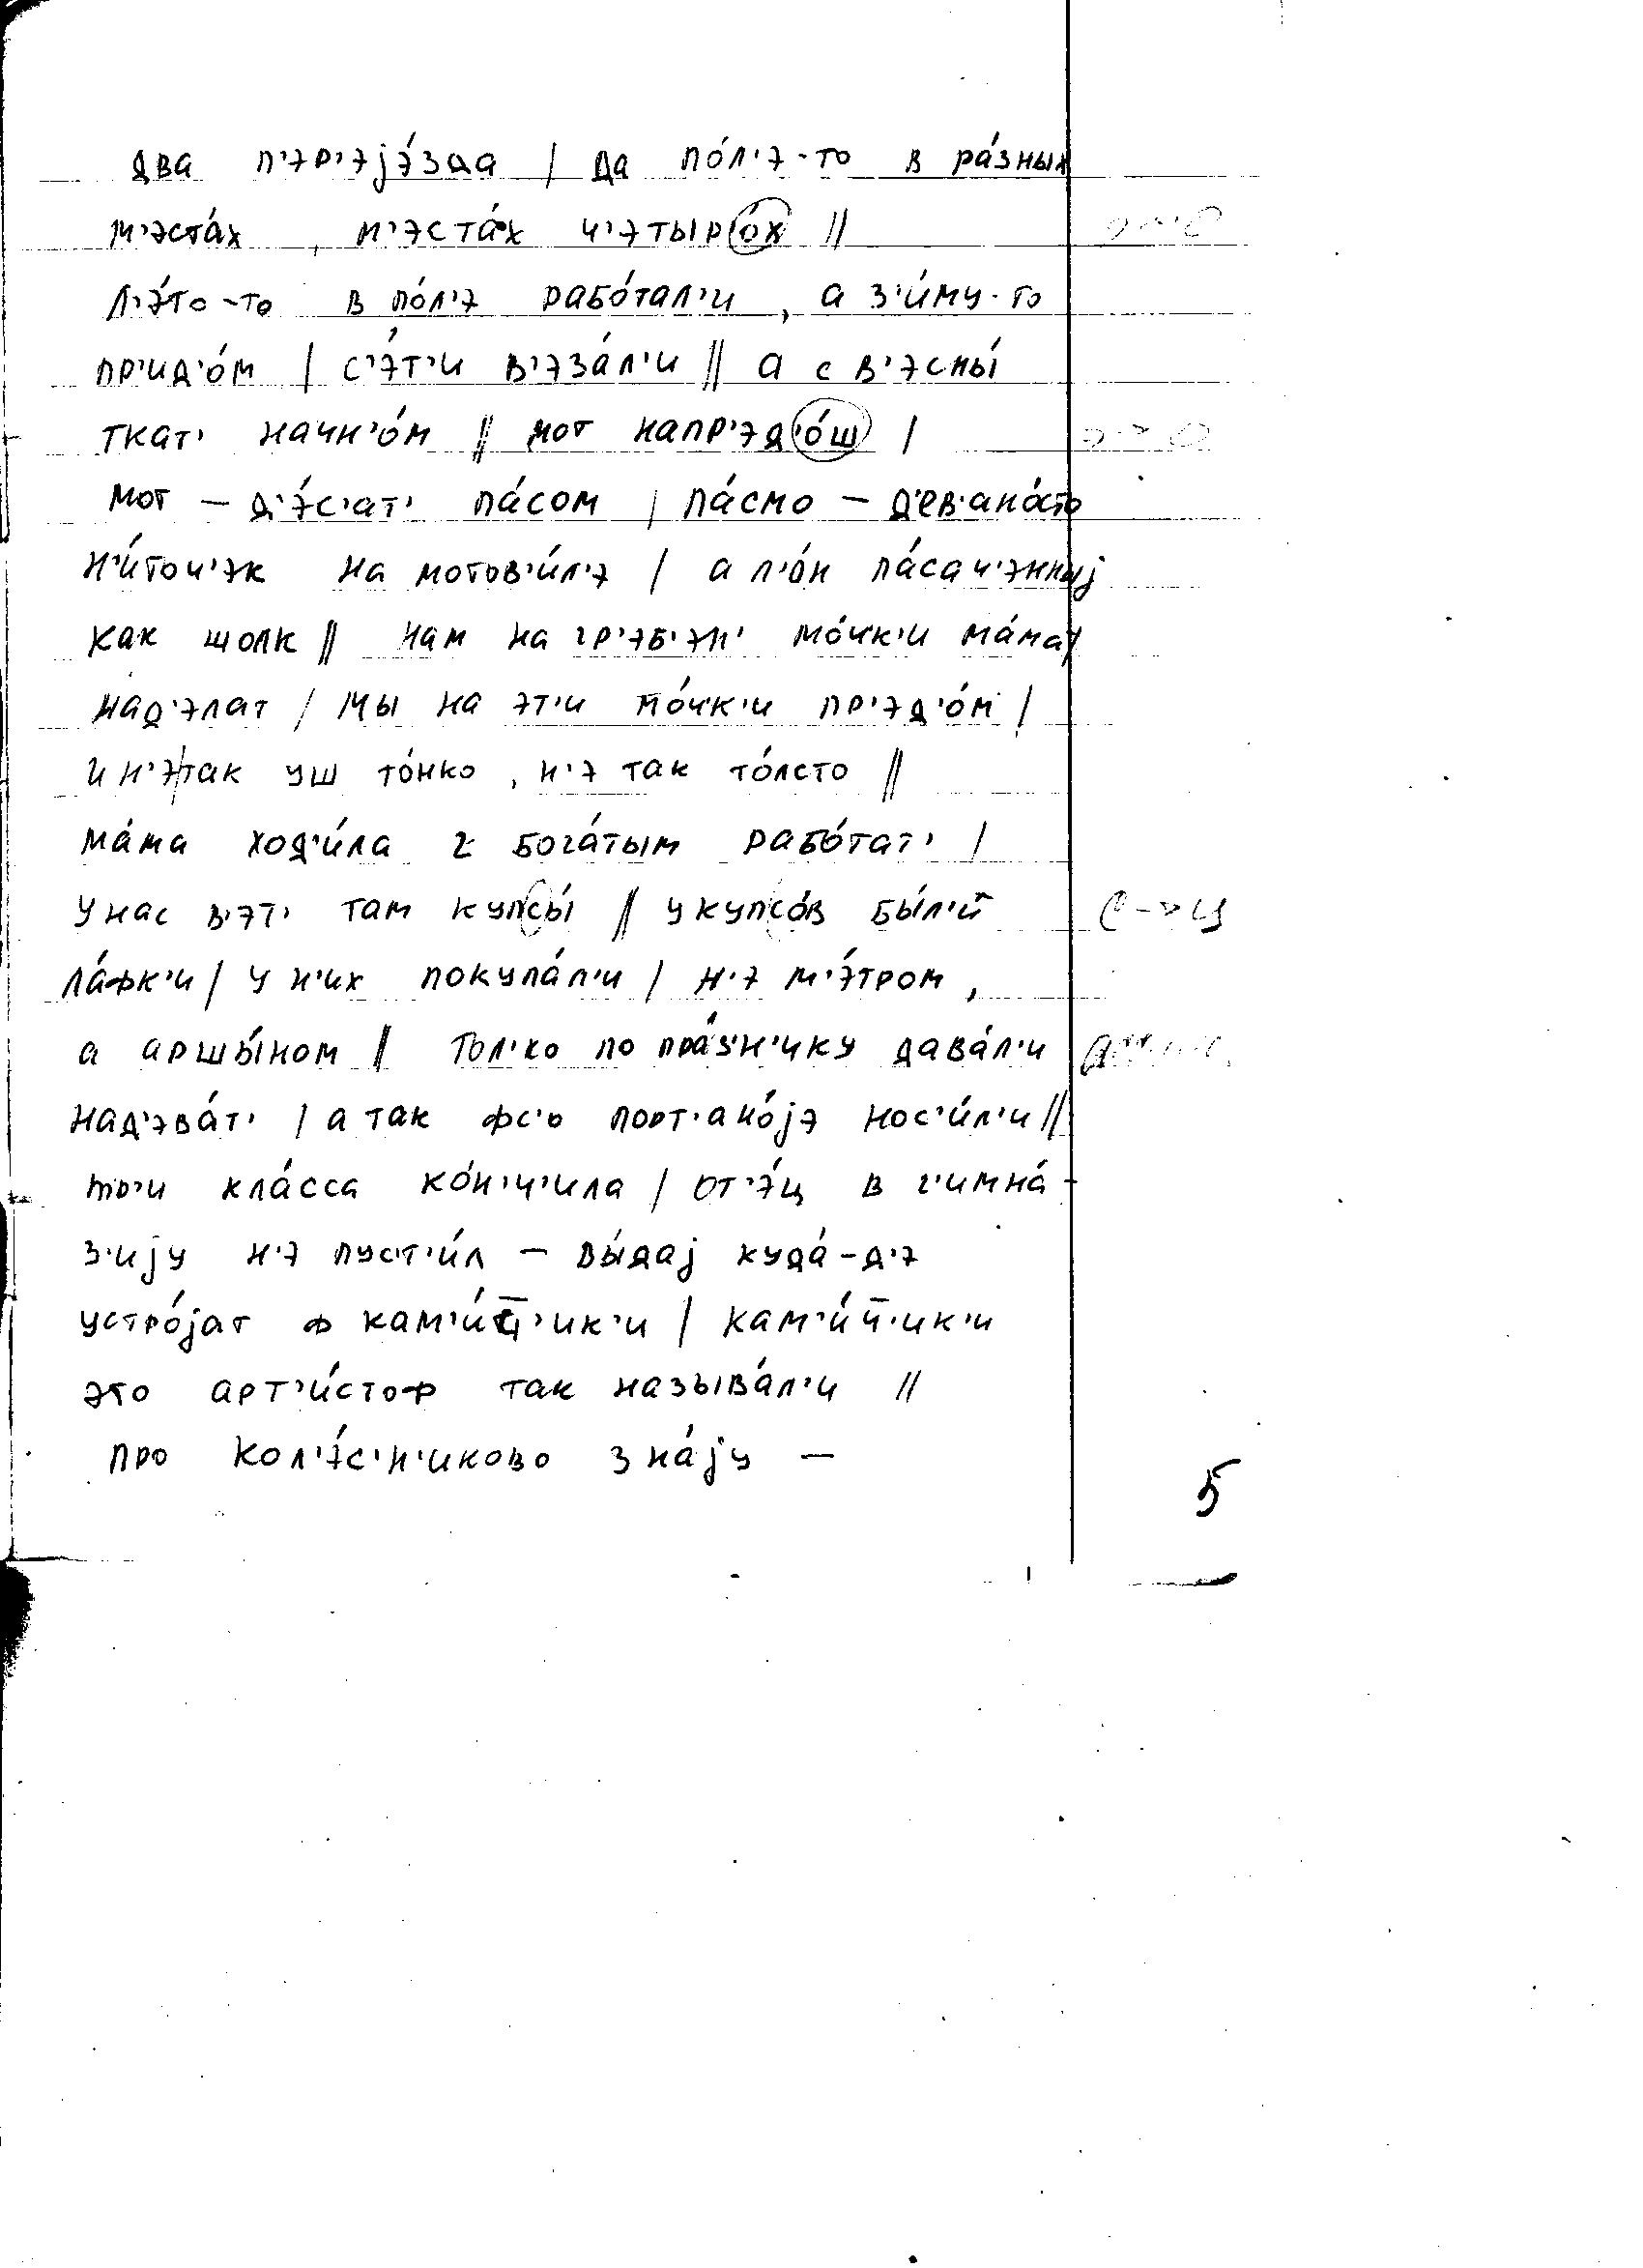 два п'эр'эjэ́зда / да по́л'э-то в ра́зных
м'эста́х , м'эста́х ч'этыро́х //
л'э́то-то в по́л'э рабо́тал'и , а з'и́му-то
пр'ид'о́м / с'э́т'и в'эза́л'и // а с в'эсны́
ткат' начн'о́м // мот напр'эд'о́ш /
мот – д'э́с'ат' па́сом / па́смо – д'ев'ано́сто
н'и́точ'эк на мотов'и́л'э / а л'о́н па́сач'эннуj
как шолк // нам на гр'эб'эн' мо́чк'и ма́ма
над'элат / мы на эт'и мо́чк'и пр'эд'о́м /
и н'э так уш то́нко , н'э так то́лсто //
ма́ма ход'и́ла г бога́тым рабо́тат' /
у нас в'эт' там купсы́ // у купсо́в бы́л'и
ла́фк'и / у н'их покупа́л'и / н'э м'э́тром ,
а аршы́ном // тол'ко по пра́з'н'ичку дава́л'и
над'эва́т' / а так фс'о порт'ано́jэ нос'и́л'и //
тр'и кла́сса ко́н'ч'ила / от'э́ц в г'имна́-
з'иjу н'э пуст'и́л – вы́даj куда́-д'э
устро́jат ф кам'и́ч̄'ик'и / кам'и́ч̄'ик'и
это арт'и́стоф так называ́л'и //
про кол'э́с'н'иково зна́jу –
с → ц
5